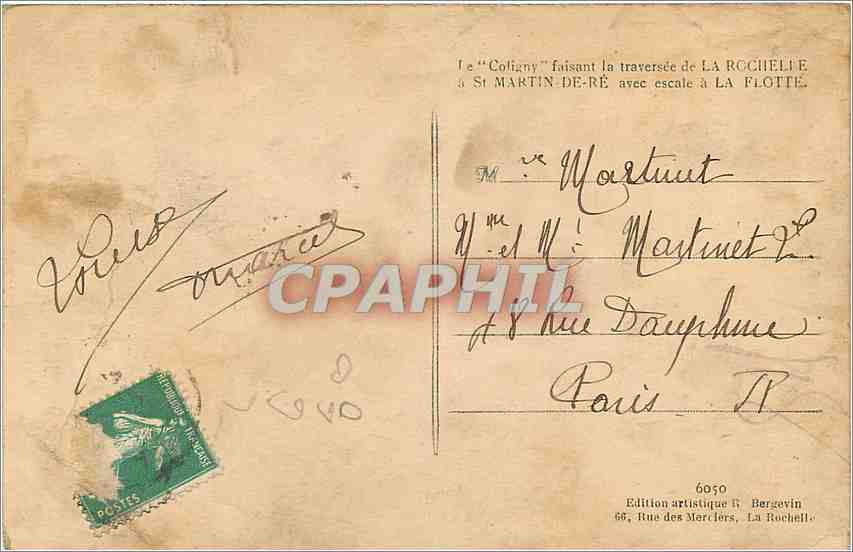 Le "Coligny" faisant la traversée de LA ROCHELLE
à St MARTIN-DE-RÉ avec escale à LA FLOTTE.
Martinet
Mme et Mr Martinet
Rue Dauphine
Paris
Louise
Marcel
CPAPHIL
RÉPUBLIQUE FRANÇAISE
POSTES
6050
Edition artistique R Bergevin
66, Rue des Merciers, La Rochelle